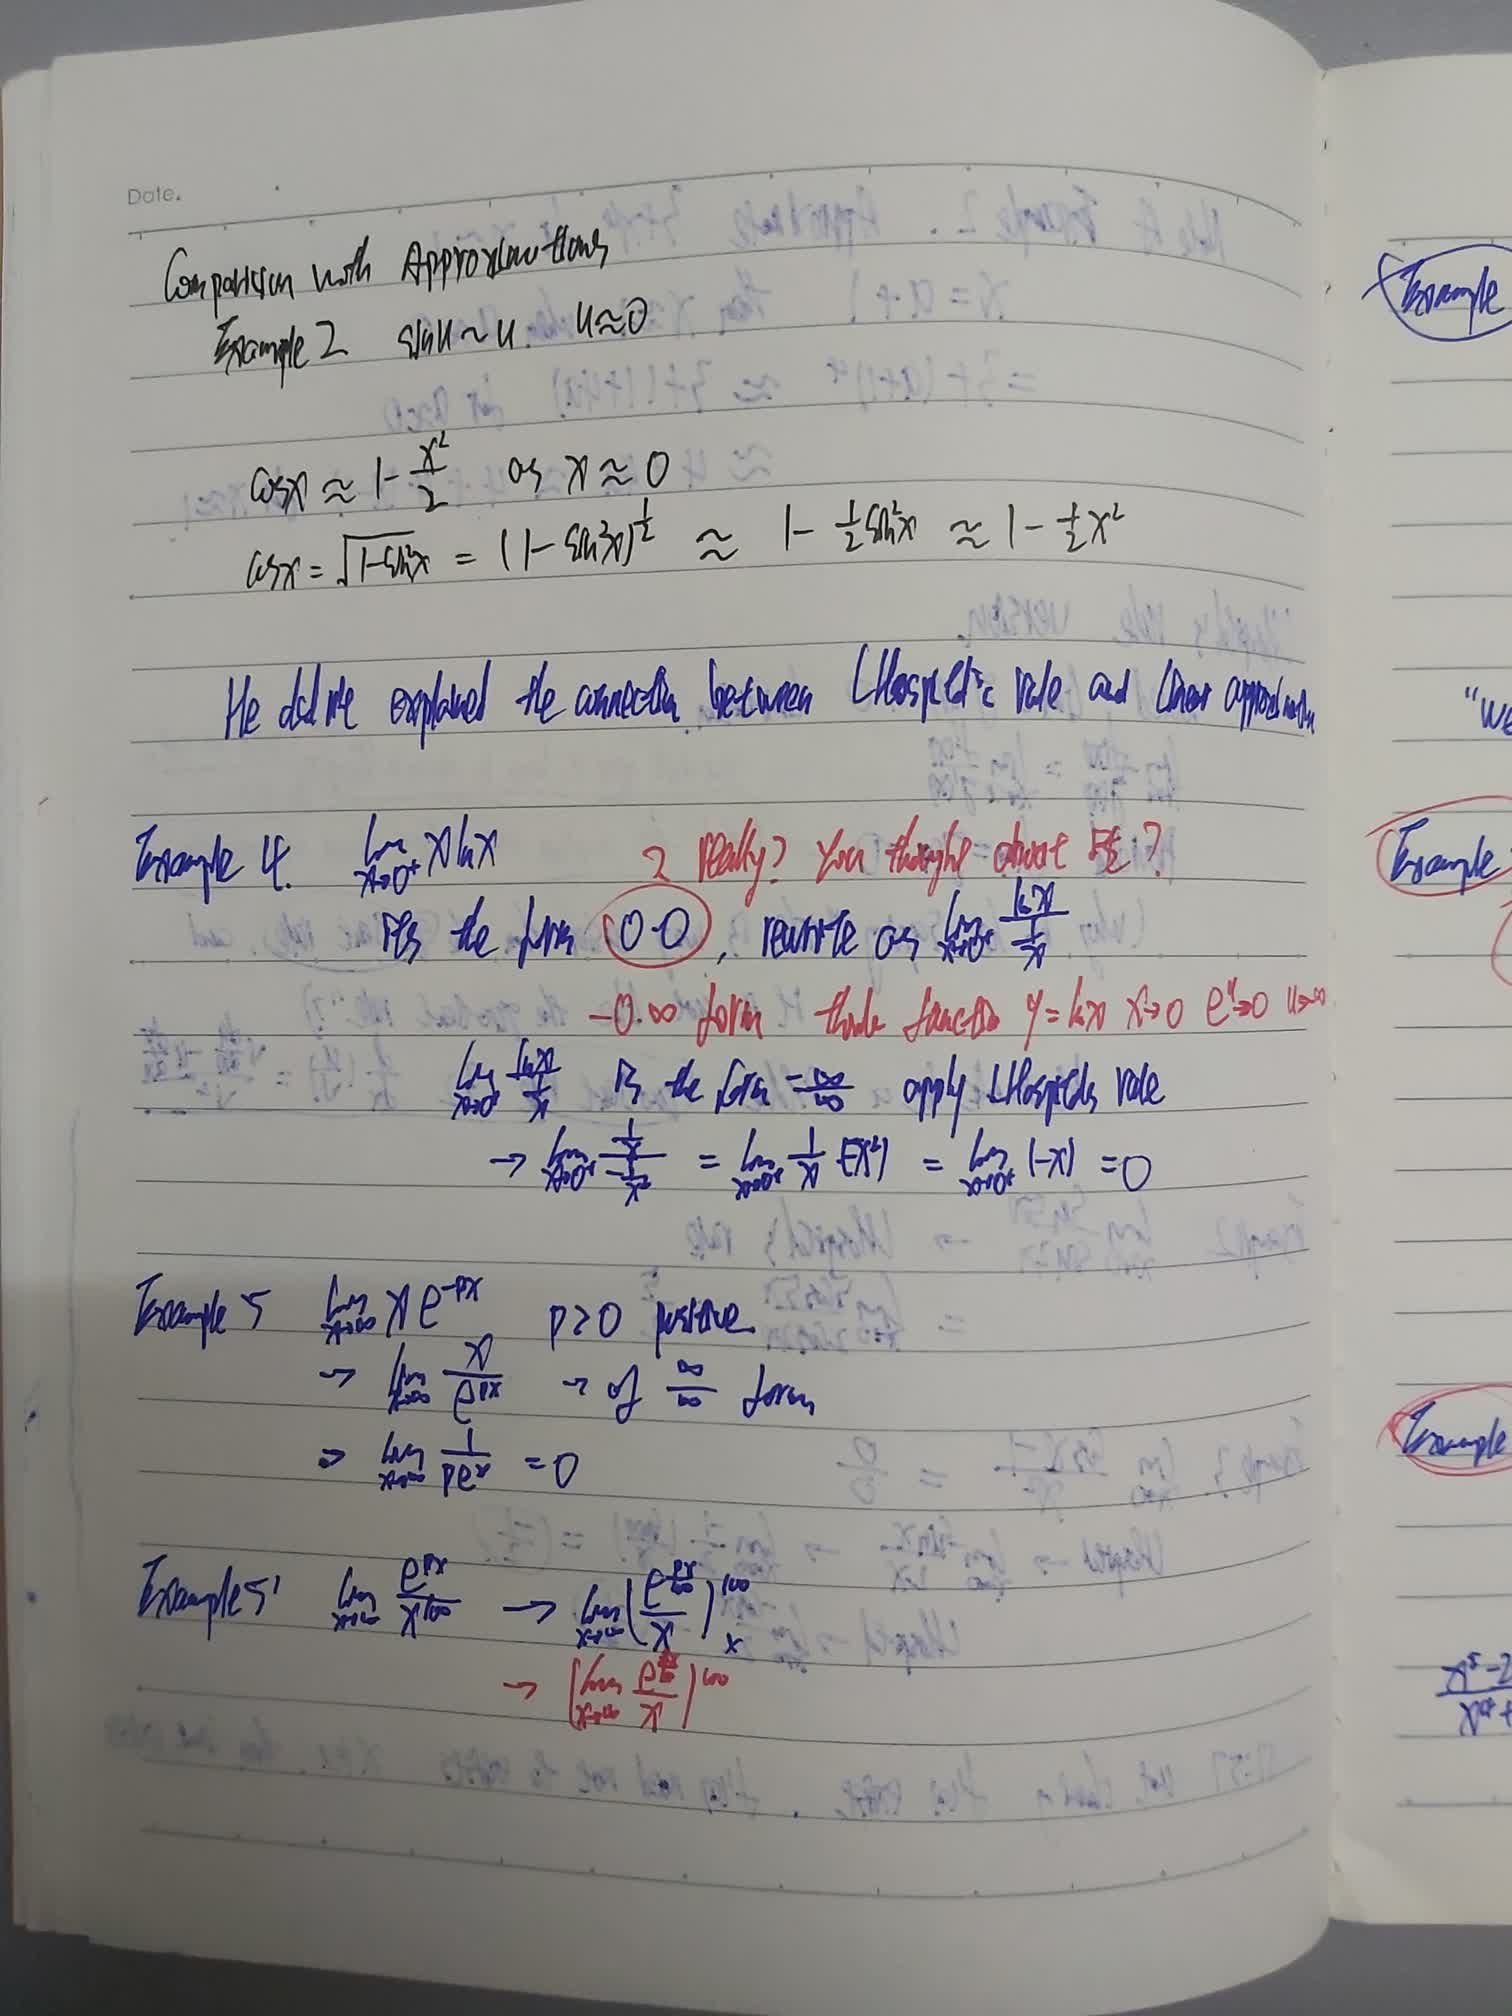 Date.
Comparison with Approximations
Example 2 sin u ~ u. u ≈ 0
cos x ≈ 1 - x²/2 as x ≈ 0
cos x = √(1-sin²x) = (1-sin²x)^(1/2) ≈ 1 - 1/2 sin²x ≈ 1 - 1/2 x²
He explained the connection between L'Hospital's rule and linear approximation
Example 4. lim x→0⁺ x ln x ? really? You thought about it?
Its the form 0·0, rewrite as lim x→0⁺ ln x / (1/x)
-0·∞ form function y = ln x x→0 e^y→0
lim x→0⁺ ln x / (1/x) is the form -∞/∞ apply L'Hospital's rule
→ lim x→0⁺ (1/x) / (-1/x²) = lim x→0⁺ 1/x (-x²) = lim x→0⁺ (-x) = 0
Example 5 lim x→∞ x e^(-px) p>0 positive
→ lim x→∞ x / e^(px) → of ∞/∞ form
⇒ lim x→∞ 1 / (pe^x) = 0
Example 5' lim x→∞ e^(px) / x^100 → lim x→∞ (e^(px/100) / x)^100
→ (lim x→∞ e^(px/100) / x)^100
Example
"We
Example
Example
x⁵-2